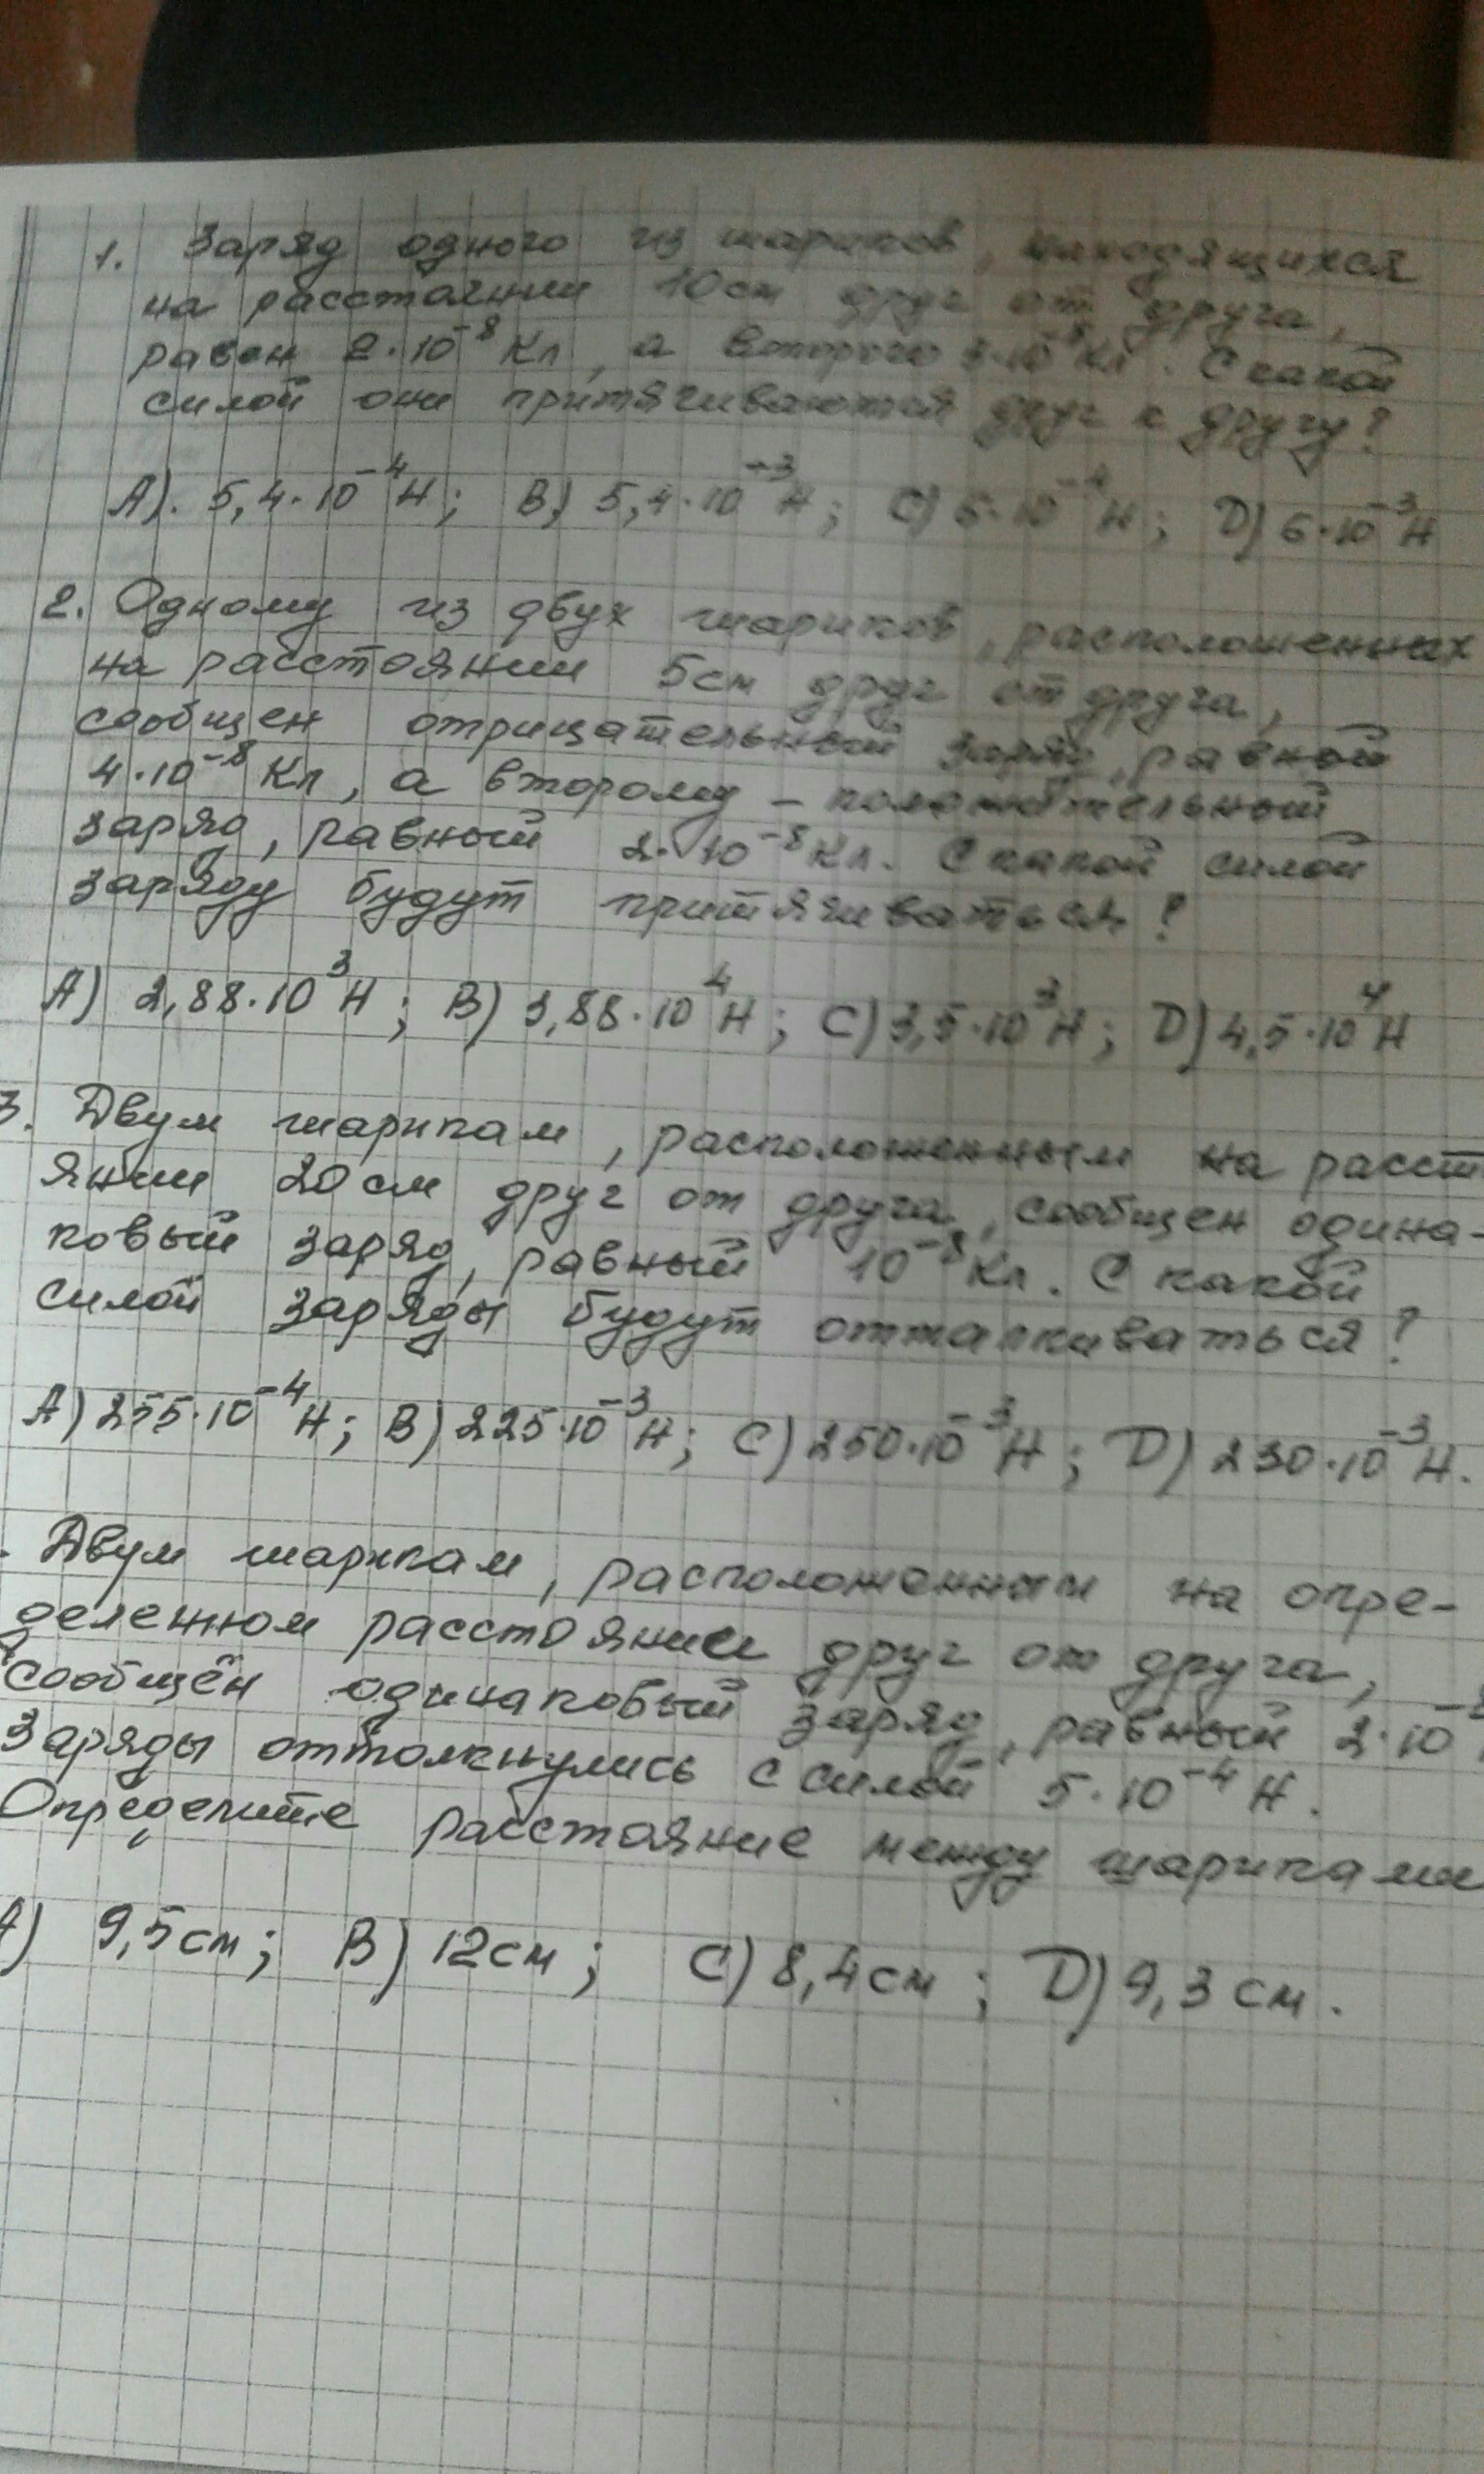 1. Заряд одного из шариков, находящихся
на расстоянии 10см друг от друга,
равен 2·10⁻⁸ Кл, а второго 3·10⁻⁸ Кл. С какой
силой они притягиваются друг к другу?
А). 5,4·10⁻⁴Н; В) 5,4·10⁻³Н; С) 5·10⁻⁴Н; D) 6·10⁻³Н
2. Одному из двух шариков, расположенных
на расстоянии 5см друг от друга,
сообщен отрицательный заряд, равной
4·10⁻⁸ Кл, а второму – положительный
заряд, равный 2·10⁻⁸ Кл. С какой силой
заряду будут притягиваться?
А) 2,88·10³Н; В) 3,88·10⁴Н; С) 3,5·10³Н; D) 4,5·10⁴Н
3. Двум шарикам, расположенным на расст
янии 20см друг от друга, сообщен одина-
ковый заряд, равный 10⁻⁸ Кл. С какой
силой заряды будут отталкиваться?
А) 255·10⁻⁴Н; В) 225·10⁻³Н; С) 250·10⁻³Н; D) 230·10⁻³Н.
. Двум шарикам, расположенным на опре-
деленном расстоянии друг от друга,
сообщён одинаковый заряд, равный 2·10
Заряды оттолкнулись с силой 5·10⁻⁴ Н.
Определите расстояние между шариками
А) 9,5см; В) 12см; С) 8,4см; D) 9,3 см.